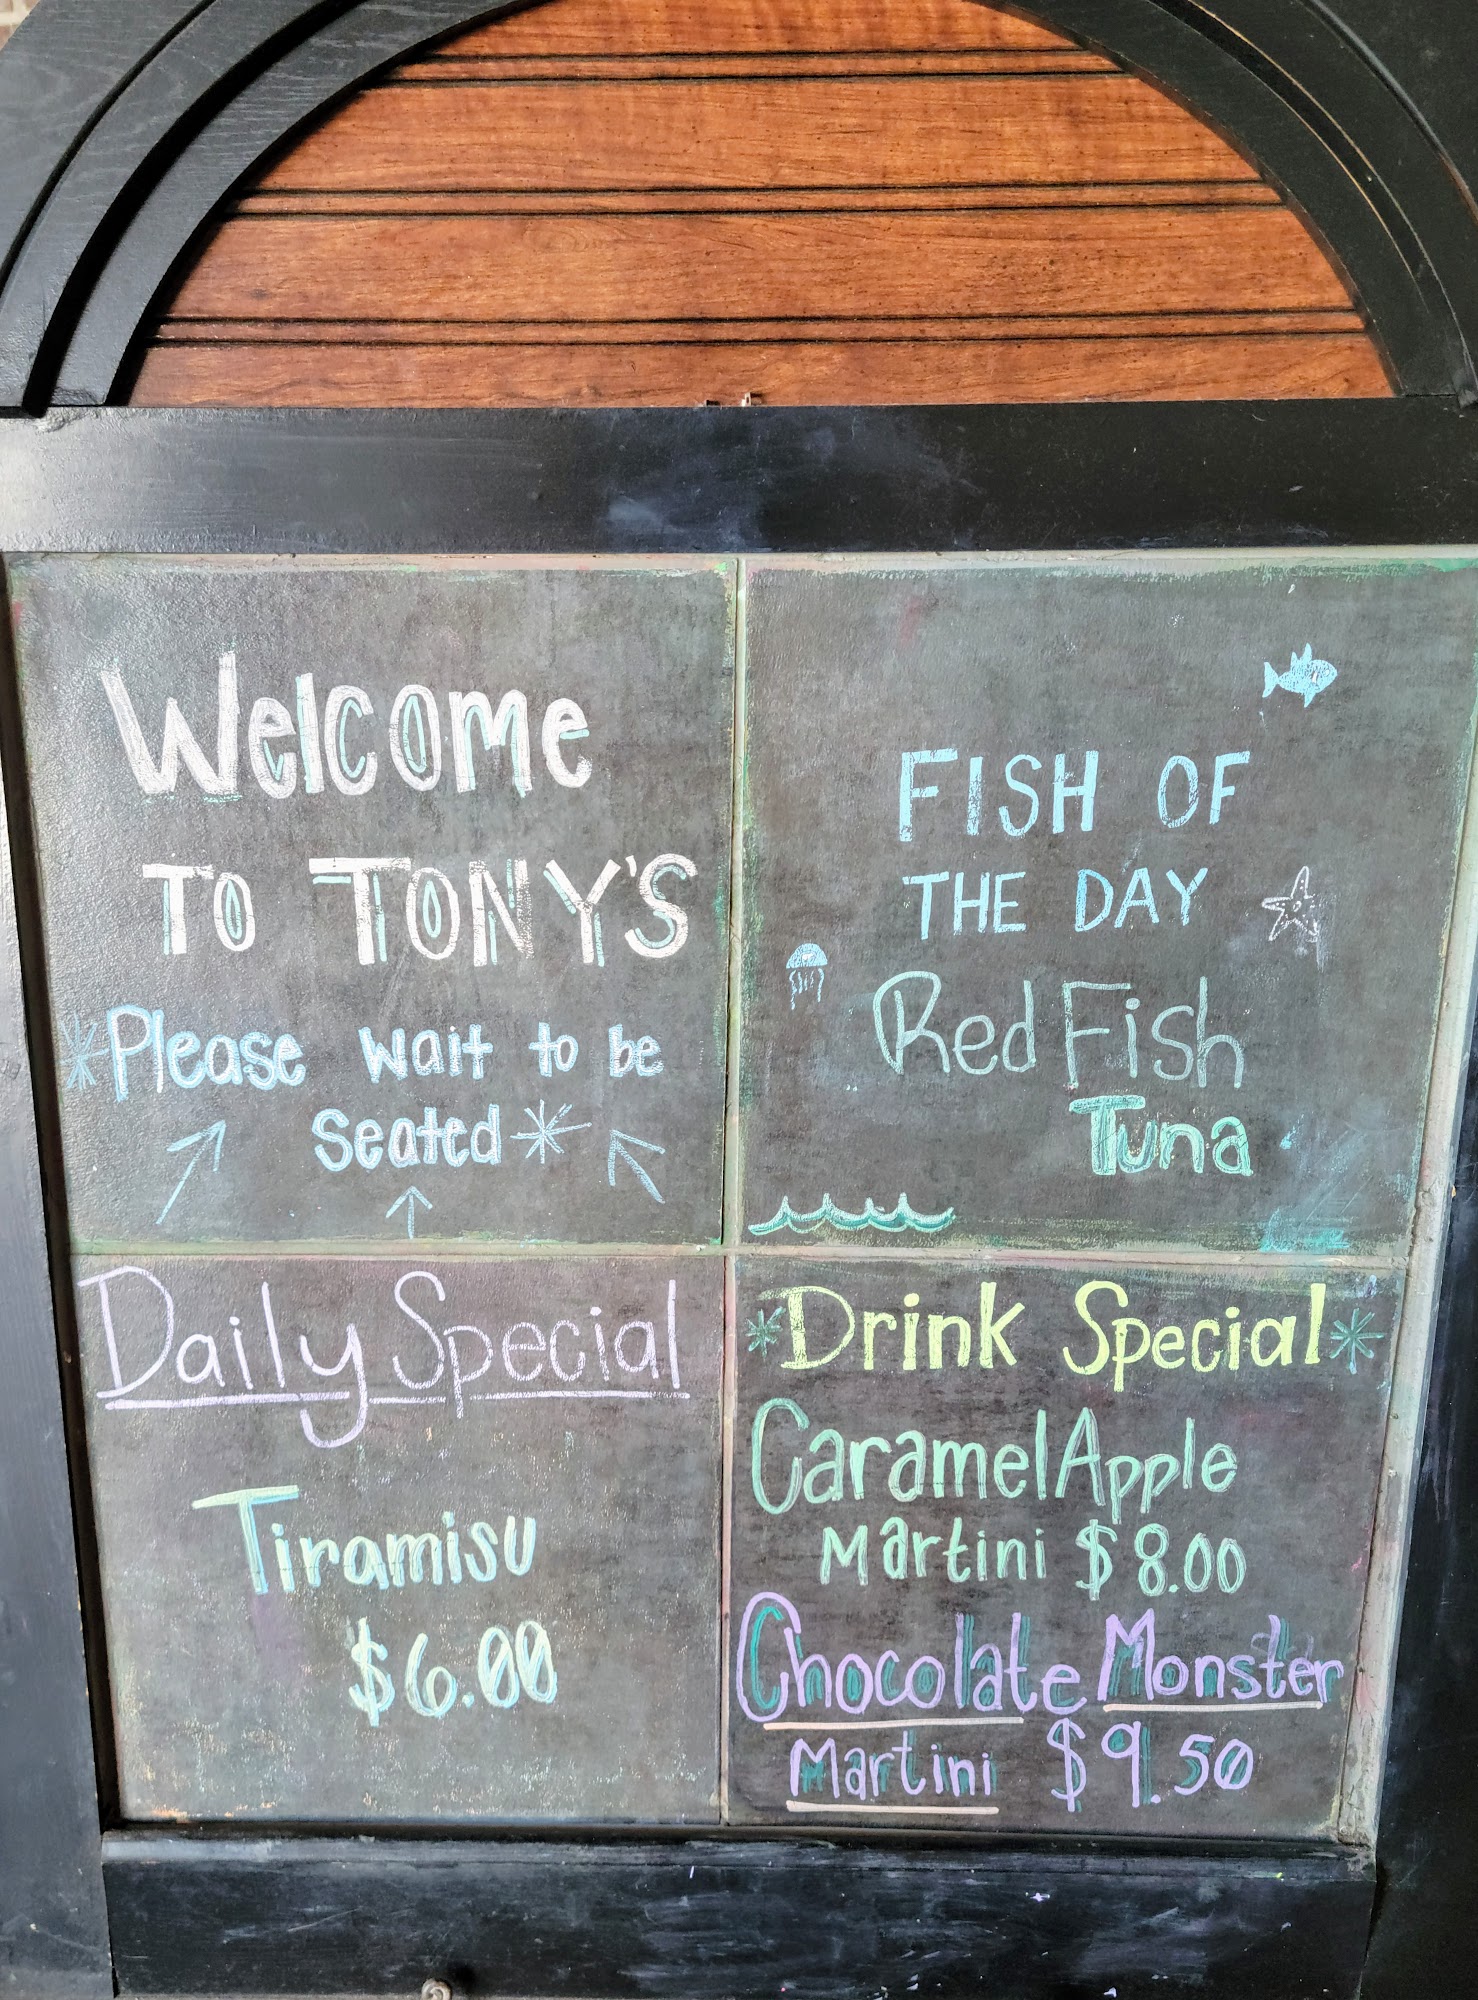 Welcome
TO TONY'S
*Please wait to be
seated*
FISH OF
THE DAY
Red Fish
Tuna
Daily Special
Tiramisu
$6.00
*Drink Special*
Caramel Apple
Martini $8.00
Chocolate Monster
Martini $9.50